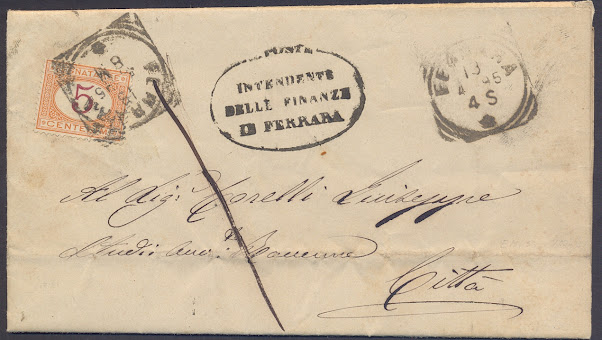 SEGNATASSE
5
CENTESIMI
FERRARA
POSTE
INTENDENTE
DELLE FINANZE
DI FERRARA
FERRARA
13
95
4 S
Al Sig. Torelli Giuseppe
Studio Avv.
Città